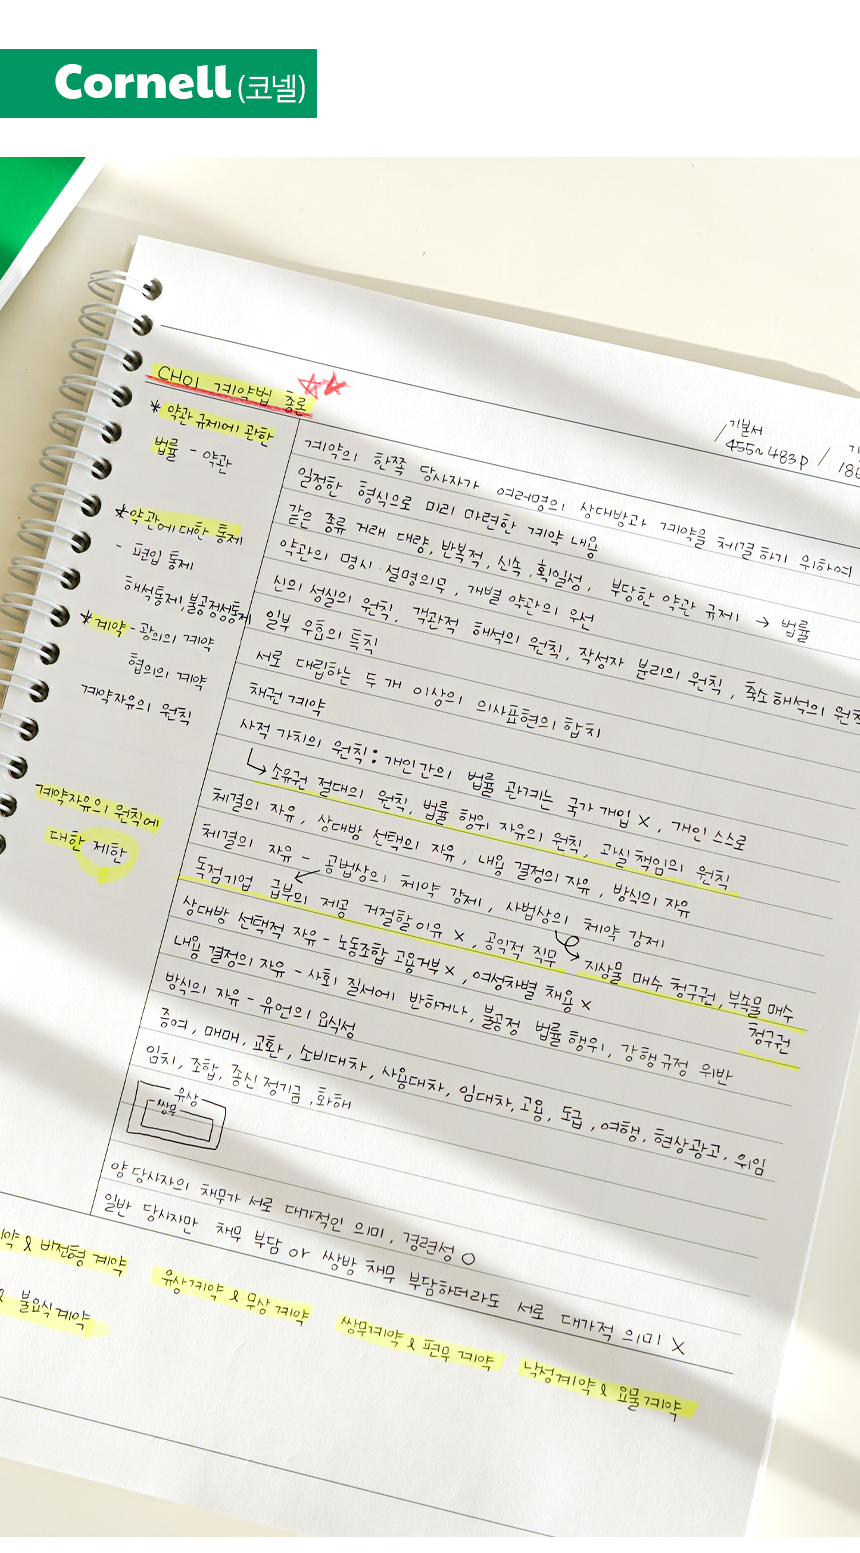 Cornell (코넬)
CH01 계약법 총론
기본서
455~483p /
* 약관 규제에 관한
법률 - 약관
* 약관에 대한 통제
- 편입 통제
해석통제, 불공정성통제
* 계약 - 광의의 계약
협의의 계약
계약자유의 원칙
계약자유의 원칙에
대한 제한
계약의 한쪽 당사자가 여러명의 상대방과 계약을 체결하기 위하여
일정한 형식으로 미리 마련한 계약 내용
같은 종류 거래 대량, 반복적, 신속, 획일성, 부당한 약관 규제 → 법률
약관의 명시·설명의무, 개별 약관의 우선
신의 성실의 원칙, 객관적 해석의 원칙, 작성자 분리의 원칙, 축소해석의 원칙
일부 무효의 특칙
서로 대립하는 두 개 이상의 의사표현의 합치
채권 계약
사적 가치의 원칙 : 개인간의 법률 관계는 국가 개입 X, 개인 스스로
↳ 소유권 절대의 원칙, 법률 행위 자유의 원칙, 과실 책임의 원칙
체결의 자유, 상대방 선택의 자유, 내용 결정의 자유, 방식의 자유
체결의 자유 - 공법상의 체약 강제, 사법상의 체약 강제
독점기업 급부의 제공 거절할이유 X, 공익적 직무
지상물 매수 청구권, 부속물 매수
청구권
상대방 선택적 자유 - 노동조합 고용거부 X, 여성차별 채용 X
내용 결정의 자유 - 사회 질서에 반하거나, 불공정 법률행위, 강행규정 위반
방식의 자유 - 유언의 요식성
증여, 매매, 교환, 소비대차, 사용대차, 임대차, 고용, 도급, 여행, 현상광고, 위임
임치, 조합, 종신정기금, 화해
유상
쌍무
양 당사자의 채무가 서로 대가적인 의미, 견련성 O
일반 당사자만 채무 부담 or 쌍방 채무 부담하더라도 서로 대가적 의미 X
& 비전형 계약
유상계약 & 무상계약
쌍무계약 & 편무 계약
낙성계약 & 요물계약
& 불요식계약